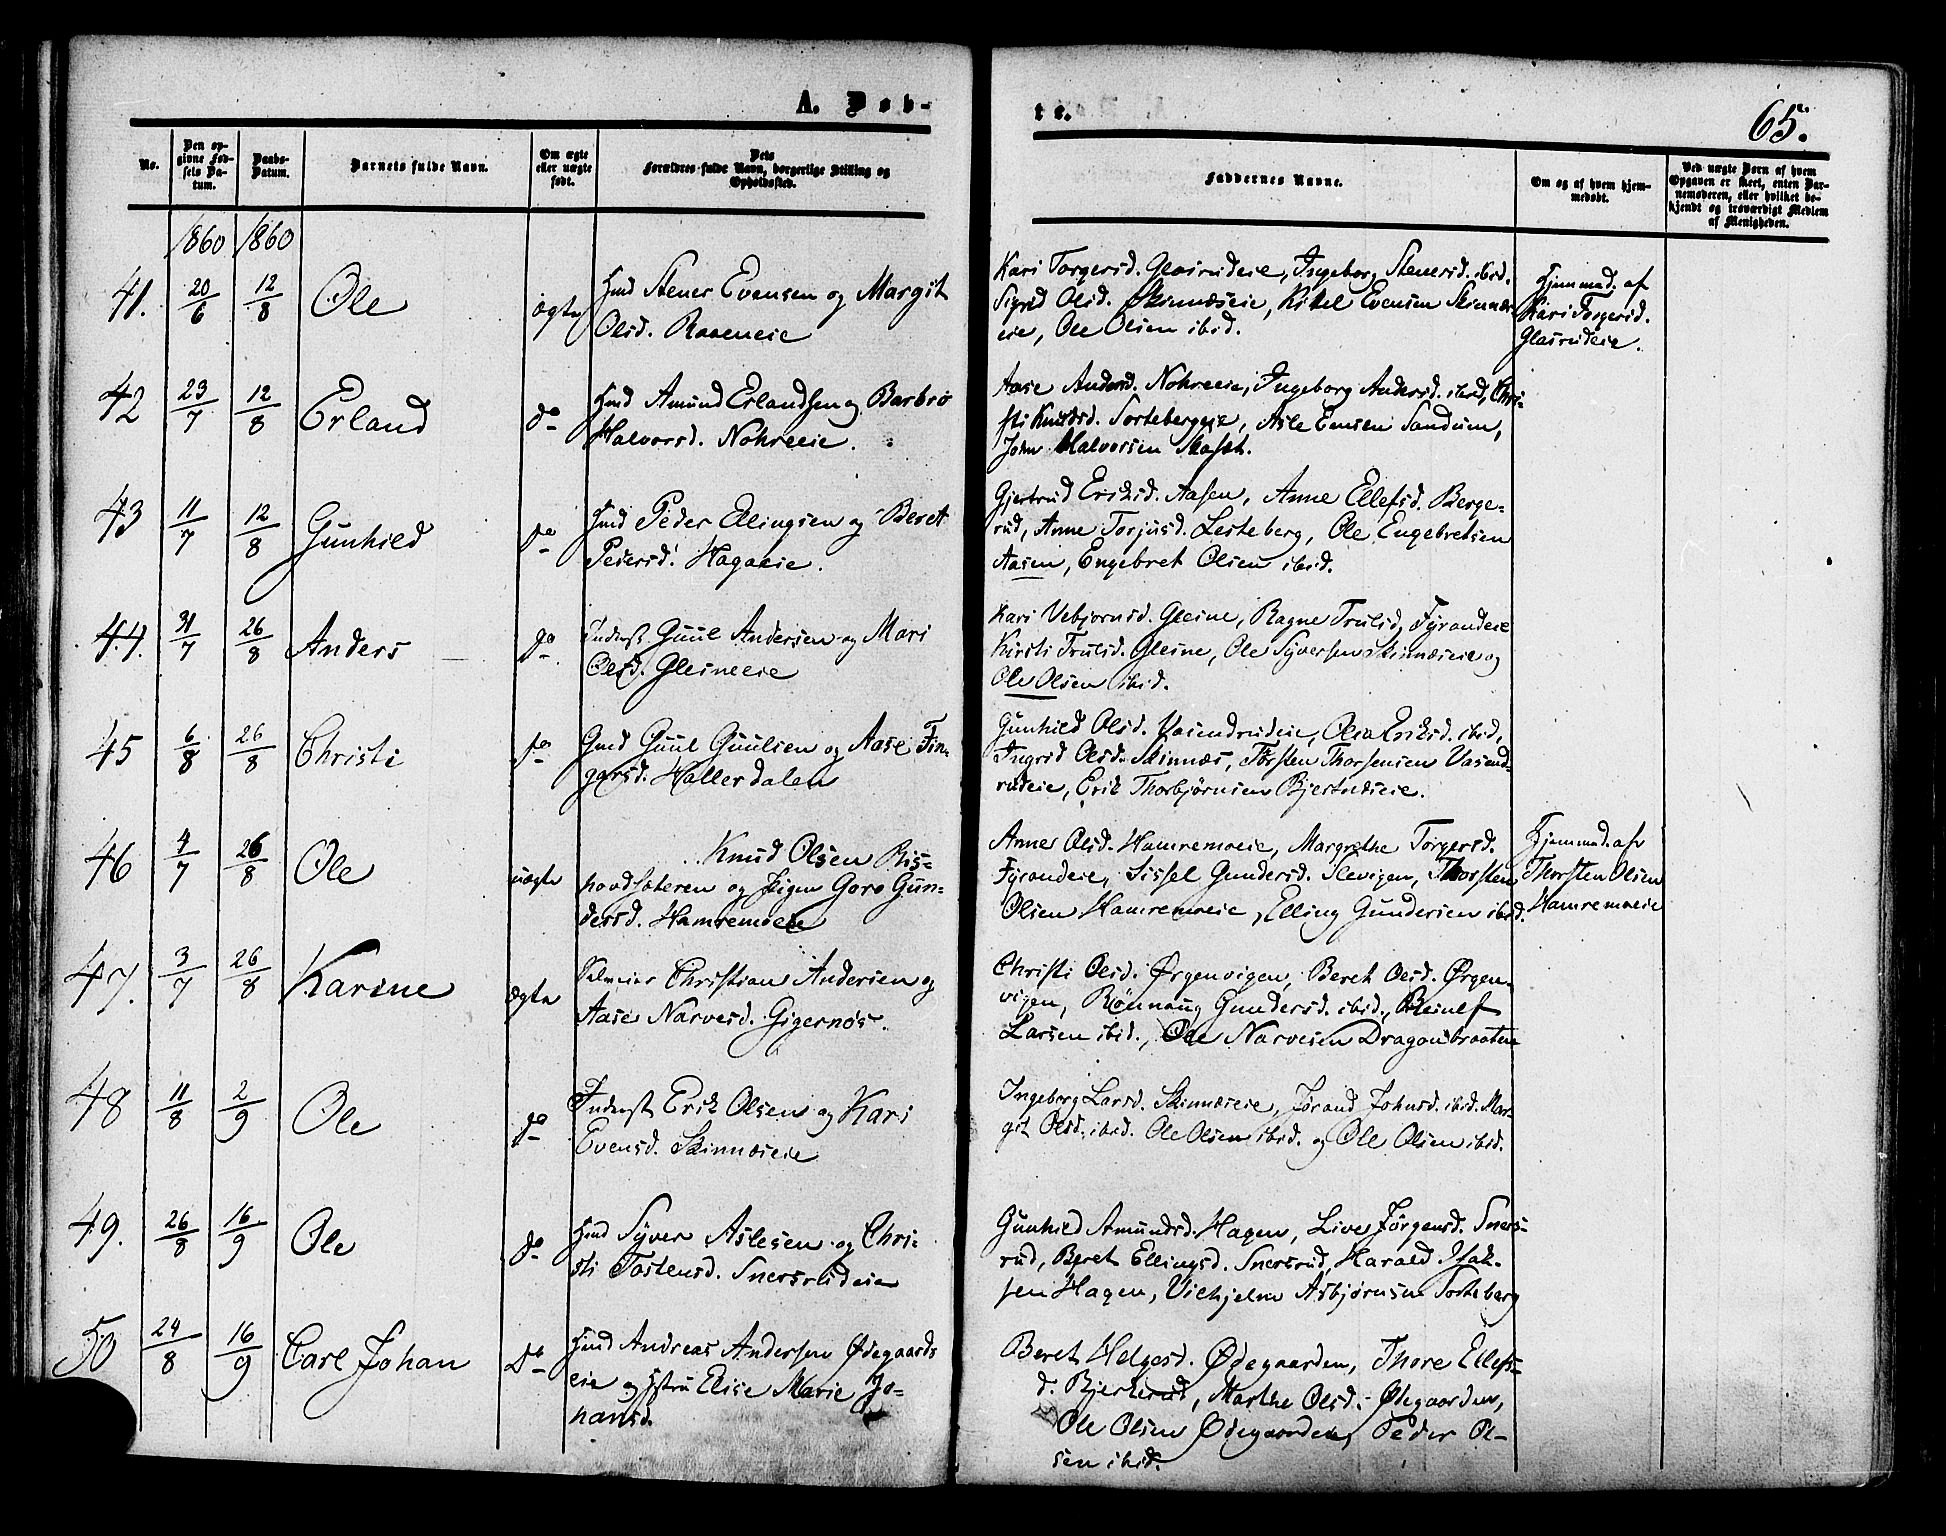 A. Døb-
te.
65.
No.
Den op-
givne Fød-
sels Da-
tum.
Daabs-
Datum.
Barnets fulde Navn.
Om ægte
eller uægte
født.
Dets
Forældres fulde Navn, borgerlige Stilling og
Opholdssted.
Faddernes Navne.
Om og af hvem hjem-
medøbt.
Ved uægte Børn af hvem
Opgaven er skeet, enten Bar-
nemoderen, eller hvilket be-
kjendt og troværdigt Medlem
af Menigheden.
1860 1860
41. 20/6 12/8 Ole ægte
Hmd Stener Evensen og Margit
Olsd. Raaeneie
Kari Torgersd. Glasrudeie, Ingeborg Stenersd. ibid.
Sigrid Olsd. Skinnæseie, Kittel Evensen Skinnæs-
eie, Ole Olsen ibid.
Hjemmed. af
Kari Torgersd.
Glasrudeie.
42 23/7 12/8 Erland do
Hmd Amund Erlandsen og Barbro
Halvorsd. Nohreeie.
Aase Andersd. Nohreeie, Ingeborg Andersd. ibid, Chri-
sti Knudsd. Sortebergeie, Asle Ensen Sandum,
John Halvorsen
43 11/7 12/8 Gunhild do
Hmd Peder Elingsen og Beret
Pedersd. Hagaeie.
Gjertrud Eriksd. Aasen, Anne Ellefsd. Berge-
rud, Anne Torjusd. Lesteberg, Ole Engebretsen
Aasen, Engebret Olsen ibid.
44. 31/7 26/8 Anders do
Inderst Guul Andersen og Mari
Olsd. Gleineeie
Kari Vebjørnsd. Gleine, Ragne Trulsd, Fyrandeie
Kirsti Trulsd. Gleine, Ole Syversen Skinnæseie og
Ole Olsen ibid.
45 6/8 26/8 Christi do
Gmd Guul Guulsen og Aase Fin-
garsd. Hallerdalen
Gunhild Olsd. Vasendrudeie, Olea Eriksd. ibid,
Ingrid Olsd. Skinnæs, Torsten Thorsensen Vasend-
rudeie, Erik Thorbjørnsen Bjertnæseie.
46 4/7 26/8 Ole uægte
Knud Olsen Ris-
hovdsæteren og Pigen Goro Gun-
dersd. Hamremoeie
Anne Olsd. Hamremoeie, Margrethe Torgersd.
Fyrandeie, Sissel Gundersd. Slevigen, Thorsten
Olsen Hamremoeie, Elling Gundersen ibid.
Hjemmed. af
Thorsten Olsen
Hamremoeie
47. 3/7 26/8 Karine ægte
Christian Andersen og
Aase Narvesd. Gigernøs.
Christi Olsd. Ørgenvigen, Beret Olsd. Ørgen-
vigen, Rønnaug Gundersd. ibid., Reinulf
Larsen ibid., Ole Narvesen Dragonbraaten
48 11/8 2/9 Ole do
Inderst Erik Olsen og Kari
Evensd. Skinnæseie
Ingeborg Larsd. Skinnæseie, Jørand Johnsd. ibid. Mar-
git Olsd. ibid. Ole Olsen ibid. og Ole Olsen ibid.
49. 26/8 16/9 Ole do
Hmd Syver Aslesen og Chri-
sti Tostensd. Snersrudeie
Gunhild Amundsd. Hagen, Live Jørgensd. Sners-
rud, Beret Ellingsd. Snersrud, Harald Isak-
sen Hagen, Vilhjelm Asbjørnsen Sorteberg
50 24/8 16/9 Carl Johan do
Hmd Andreas Andersen Ødegaards
eie og Hstru Elise Marie Jo-
hansd.
Beret Helgesd. Ødegaarden, Thore Ellefs-
d. Bjerkerud, Marthe Olsd. Ødegaarden,
Ole Olsen Ødegaarden, Peder Ol-
sen ibid.